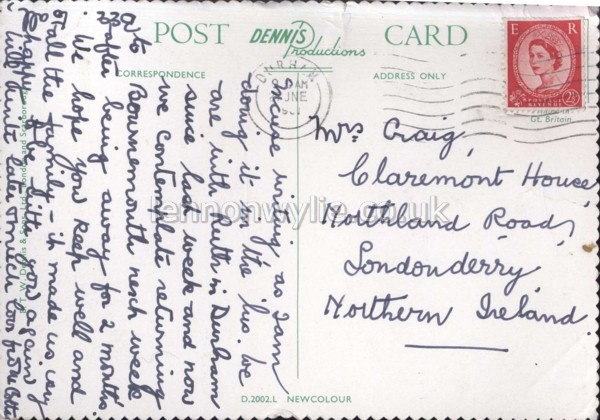 POST CARD
DENNIS
Productions
CORRESPONDENCE
ADDRESS ONLY
E R
2½
DURHAM
AM
JUNE
Gt. Britain
Mrs Craig,
Claremont House,
Northland Road,
Londonderry
Northern Ireland
writing as I am
doing it on the 'bus. We
are with Ruth in Durham
since last week and now
we contemplate returning
to Bournemouth next week
after being away for 2 months
We hope you keep well and
all the family - it made us very
happy to be with you again
will write later
D.2002.L NEWCOLOUR
lennonwylie.co.uk